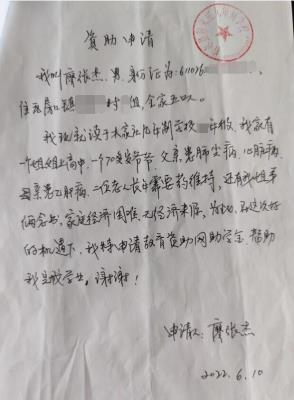 资助申请
我叫廖张杰，男，身份证为：611026
住 镇 村 组，全家五口人。
我现就读于 九年制学校 年级，我家有
一个姐姐上高中，一个70岁爷爷，父亲患肺尘病，心脏病
母亲患乙肝病，二位老人长年需吃药维持，还有我姐弟
俩念书，家庭经济困难，无经济来源， 在这次好
的机遇下，我特申请教育资助网助学金，帮助
我完成学业，谢谢！
申请人：廖张杰
2022.6.10